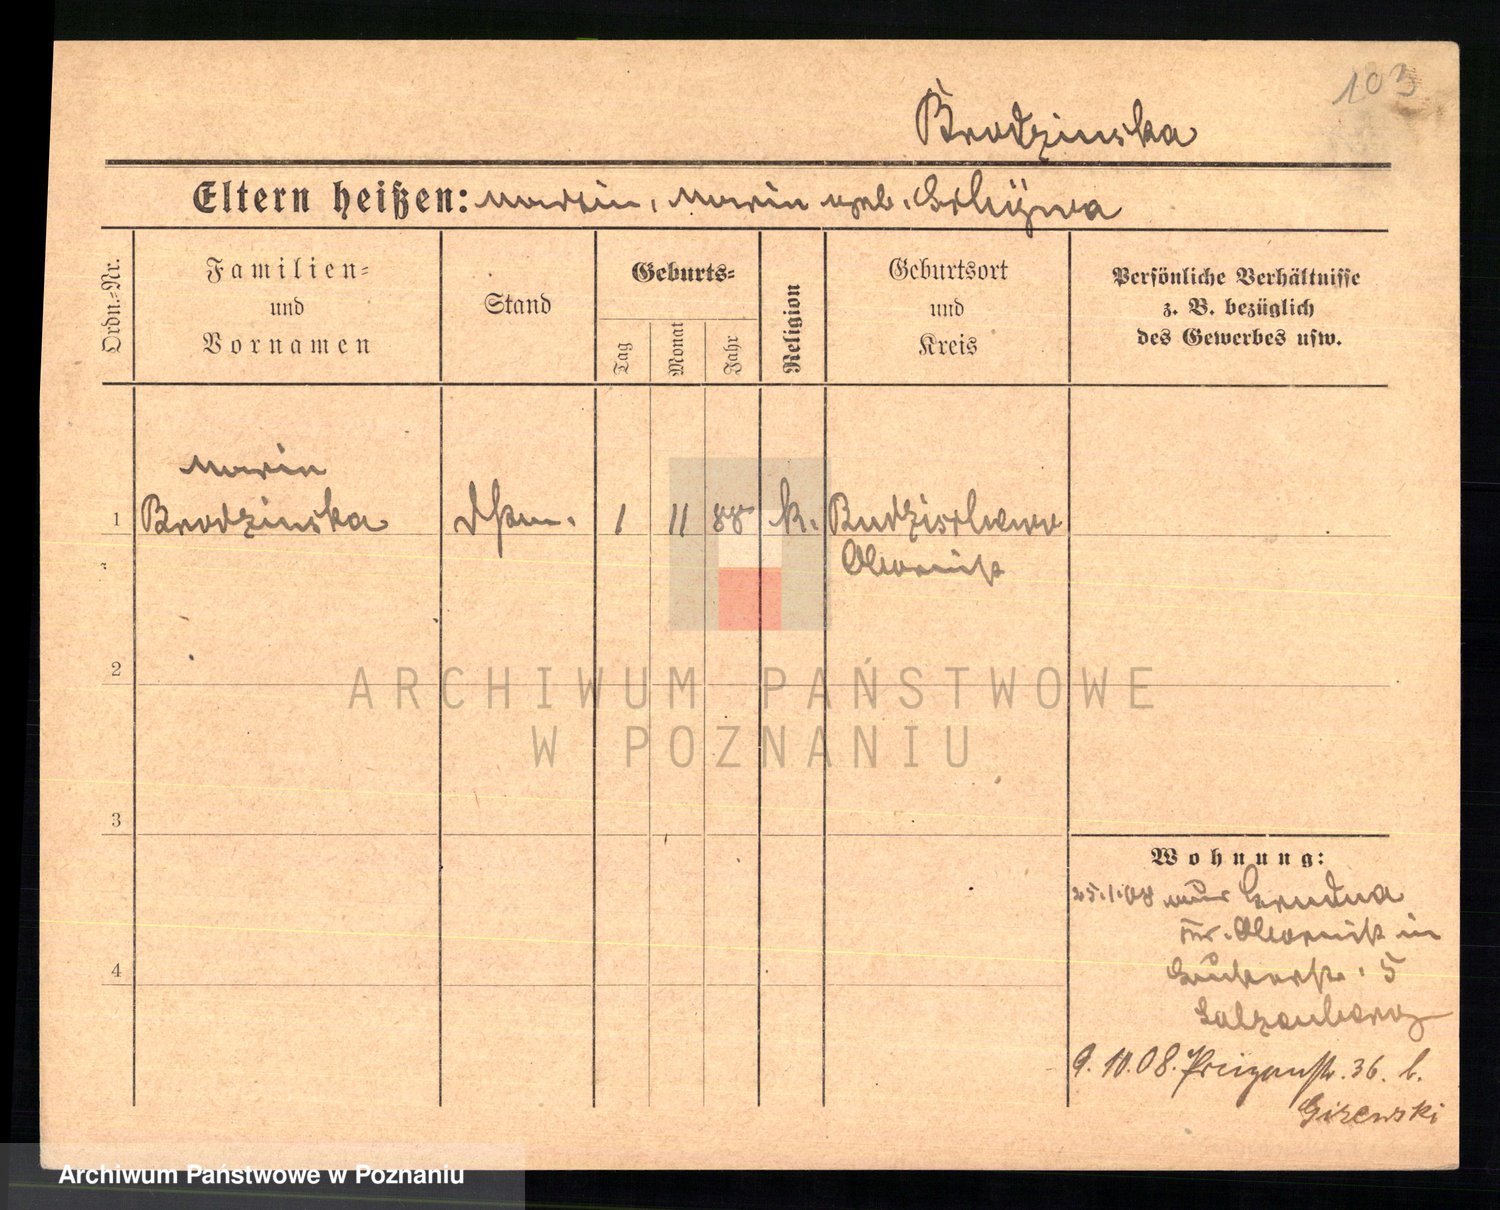 103
Brodzinska
Eltern heißen: Martin, Marie geb.
Ordn.-Nr.
Familien-
und
Vornamen
Stand
Geburts-
Tag
Monat
Jahr
Religion
Geburtsort
und
Kreis
Persönliche Verhältnisse
z. B. bezüglich
des Gewerbes usw.
Marie
1 Brodzinska 1 11 88 k. Budzischewo
Obornik
2
ARCHIWUM PAŃSTWOWE
W POZNANIU
3
4
Wohnung:
25.1.08
Kr. Obornik in
5
9.10.08. 36. b.
Gizewski
Archiwum Państwowe w Poznaniu